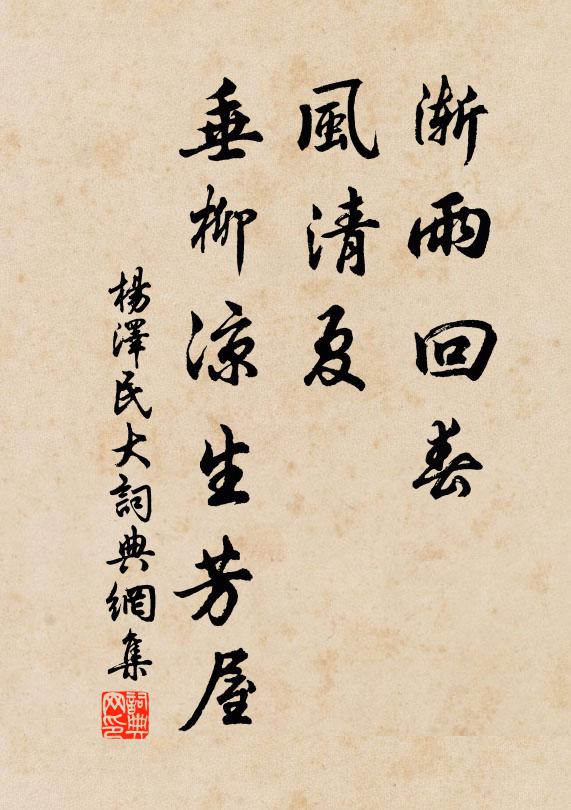 漸雨回春
風清夏
垂柳涼生芳屋
楊澤民大詞典網集
詞典网印